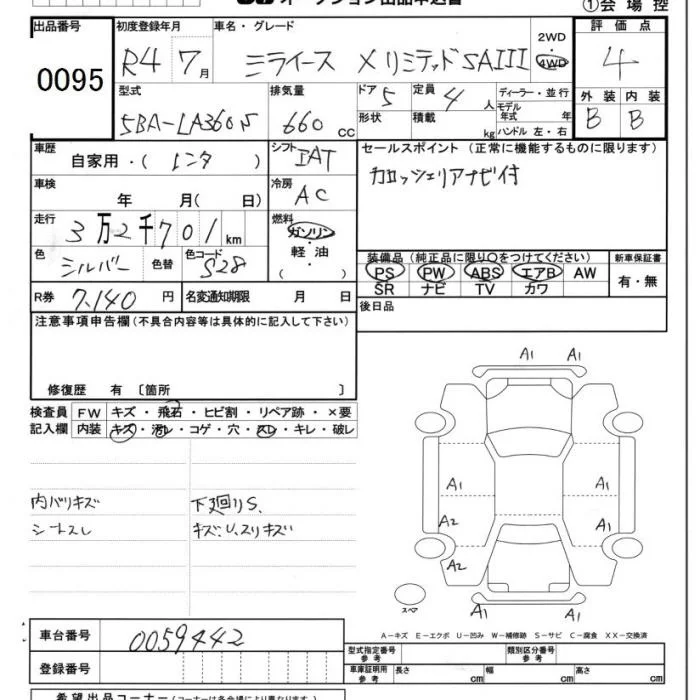 オークション出品申込書 ①会場控
出品番号 初度登録年月 車名・グレード 2WD・4WD 評価点
0095 R4 7月 ミライース X リミテッド SAIII 4
型式 排気量 ドア 5 定員 4人 ディーラー・並行 外装 内装
5BA-LA360S 660 CC 形状 積載 kg モデル年式 年 ハンドル 左・右 B B
車歴 自家用・(レンタ) シフト IAT セールスポイント (正常に機能するものに限ります)
車検 年 月(日) 冷房 AC カロッシェリアナビ付
走行 3万2千701km 燃料 ガソリン・軽油・( )
色 シルバー 色替 色コード S28 装備品 (純正品に限り○をつけてください) 新車保証書
PS PW ABS エアB AW 有・無
SR ナビ TV カワ
R券 7,140円 名変通知期限 月 日 後日品
注意事項申告欄 (不具合内容等は具体的に記入して下さい)
修復歴 有 〔箇所 〕
検査員 FW キズ・飛石・ヒビ割・リペア跡・×要
記入欄 内装 キズ・汚レ・コゲ・穴・スレ・キレ・破レ
内バリキズ 下廻りS、
シートスレ キズ、U、スリキズ
A1 A1
A1 A1
A2 A1
A2
A1 A1
スペア
A-キズ E-エクボ U-凹み W-補修跡 S-サビ C-腐食 XX-交換済
車台番号 0059442
登録番号
型式指定番号 参考 類別区分番号 参考
車庫証明用 参考 長さ cm 幅 cm 高さ cm
希望出品コーナー (コーナーは各会場により異なります)